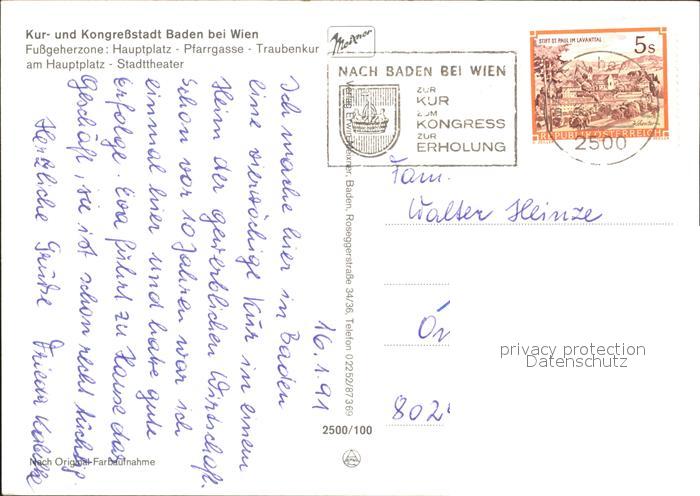 Kur- und Kongreßstadt Baden bei Wien
Fußgeherzone: Hauptplatz - Pfarrgasse - Traubenkur
am Hauptplatz - Stadttheater
Meixner
NACH BADEN BEI WIEN
ZUR
KUR
ZUM
KONGRESS
ZUR
ERHOLUNG
STIFT ST. PAUL IM LAVANTTAL
5s
REPUBLIK ÖSTERREICH
2500
16.1.91
Ich mache hier in Baden
eine vierwöchige Kur in einem
Heim der gewerblichen Wirtschaft.
Schon vor 10 Jahren war ich
einmal hier und hatte gute
Erfolge. Eva führt zu Hause das
Geschäft, sie ist schon recht tüchtig.
Herzliche Grüße Frieda
Verlag Erwin Meixner, Baden, Roseggerstraße 34/36, Telefon 02252/87369
Fam.
Walter Heinze
802
privacy protection
Datenschutz
2500/100
Nach Original-Farbaufnahme